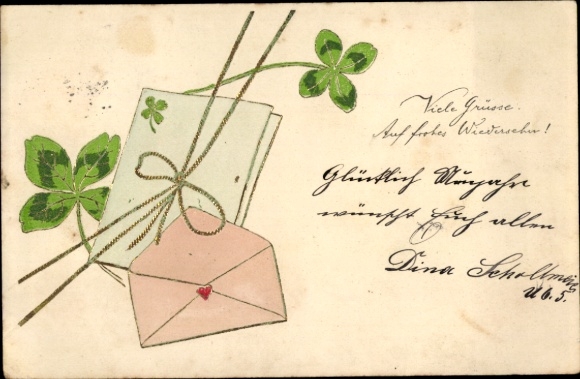 Viele Grüsse.
Auf frohes Wiedersehen!
Glücklich Neujahr
wünscht Euch allen
Dina